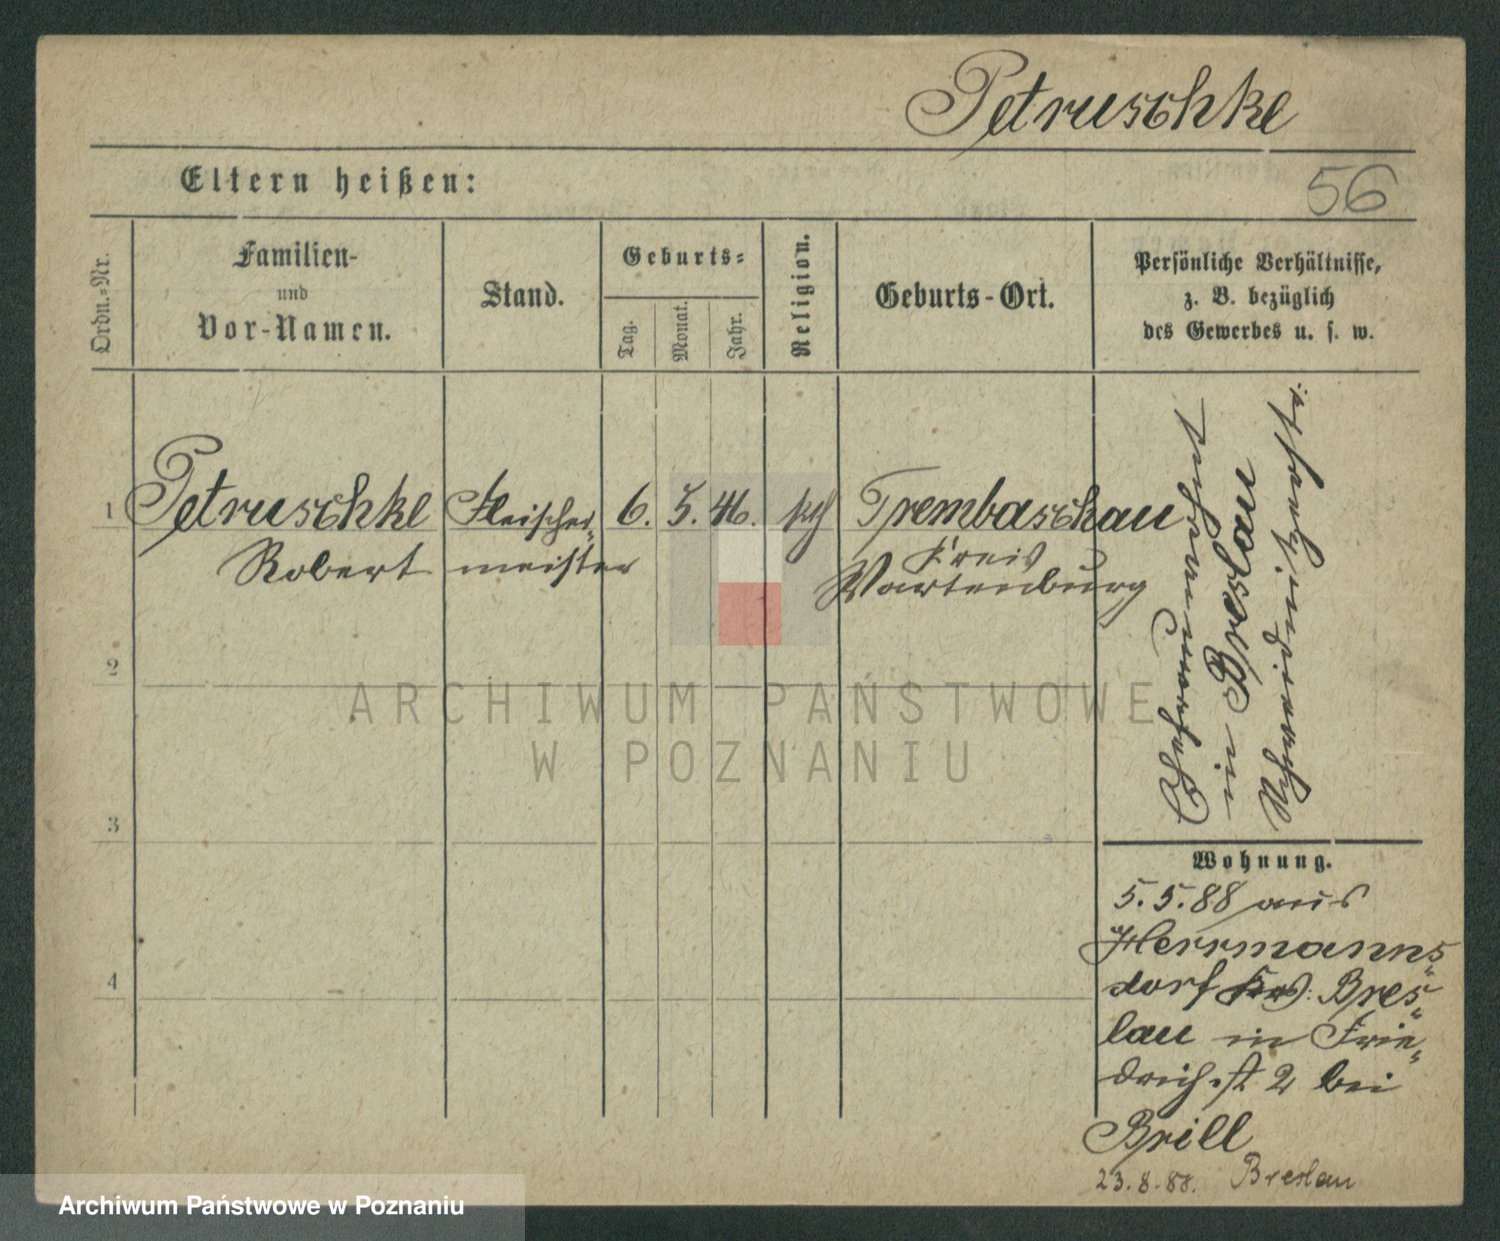 Petruschke
Eltern heißen:
56
Ordn.-Nr.
Familien-
und
Vor-Namen.
Stand.
Geburts-
Tag.
Monat.
Jahr.
Religion.
Geburts-Ort.
Persönliche Verhältnisse,
z. B. bezüglich
des Gewerbes u. s. w.
1 Petruschke Fleischer- 6. 5. 46. kth Trembaschau
Robert meister Kreis
Wartenburg
2
3
4
in Breslau
Wohnung.
5. 5. 88 aus
Herrmanns-
dorf Krs. Bres-
lau in Frie-
drichst 2 bei
Brill
23. 8. 88. Breslau
ARCHIWUM PAŃSTWOWE
W POZNANIU
Archiwum Państwowe w Poznaniu